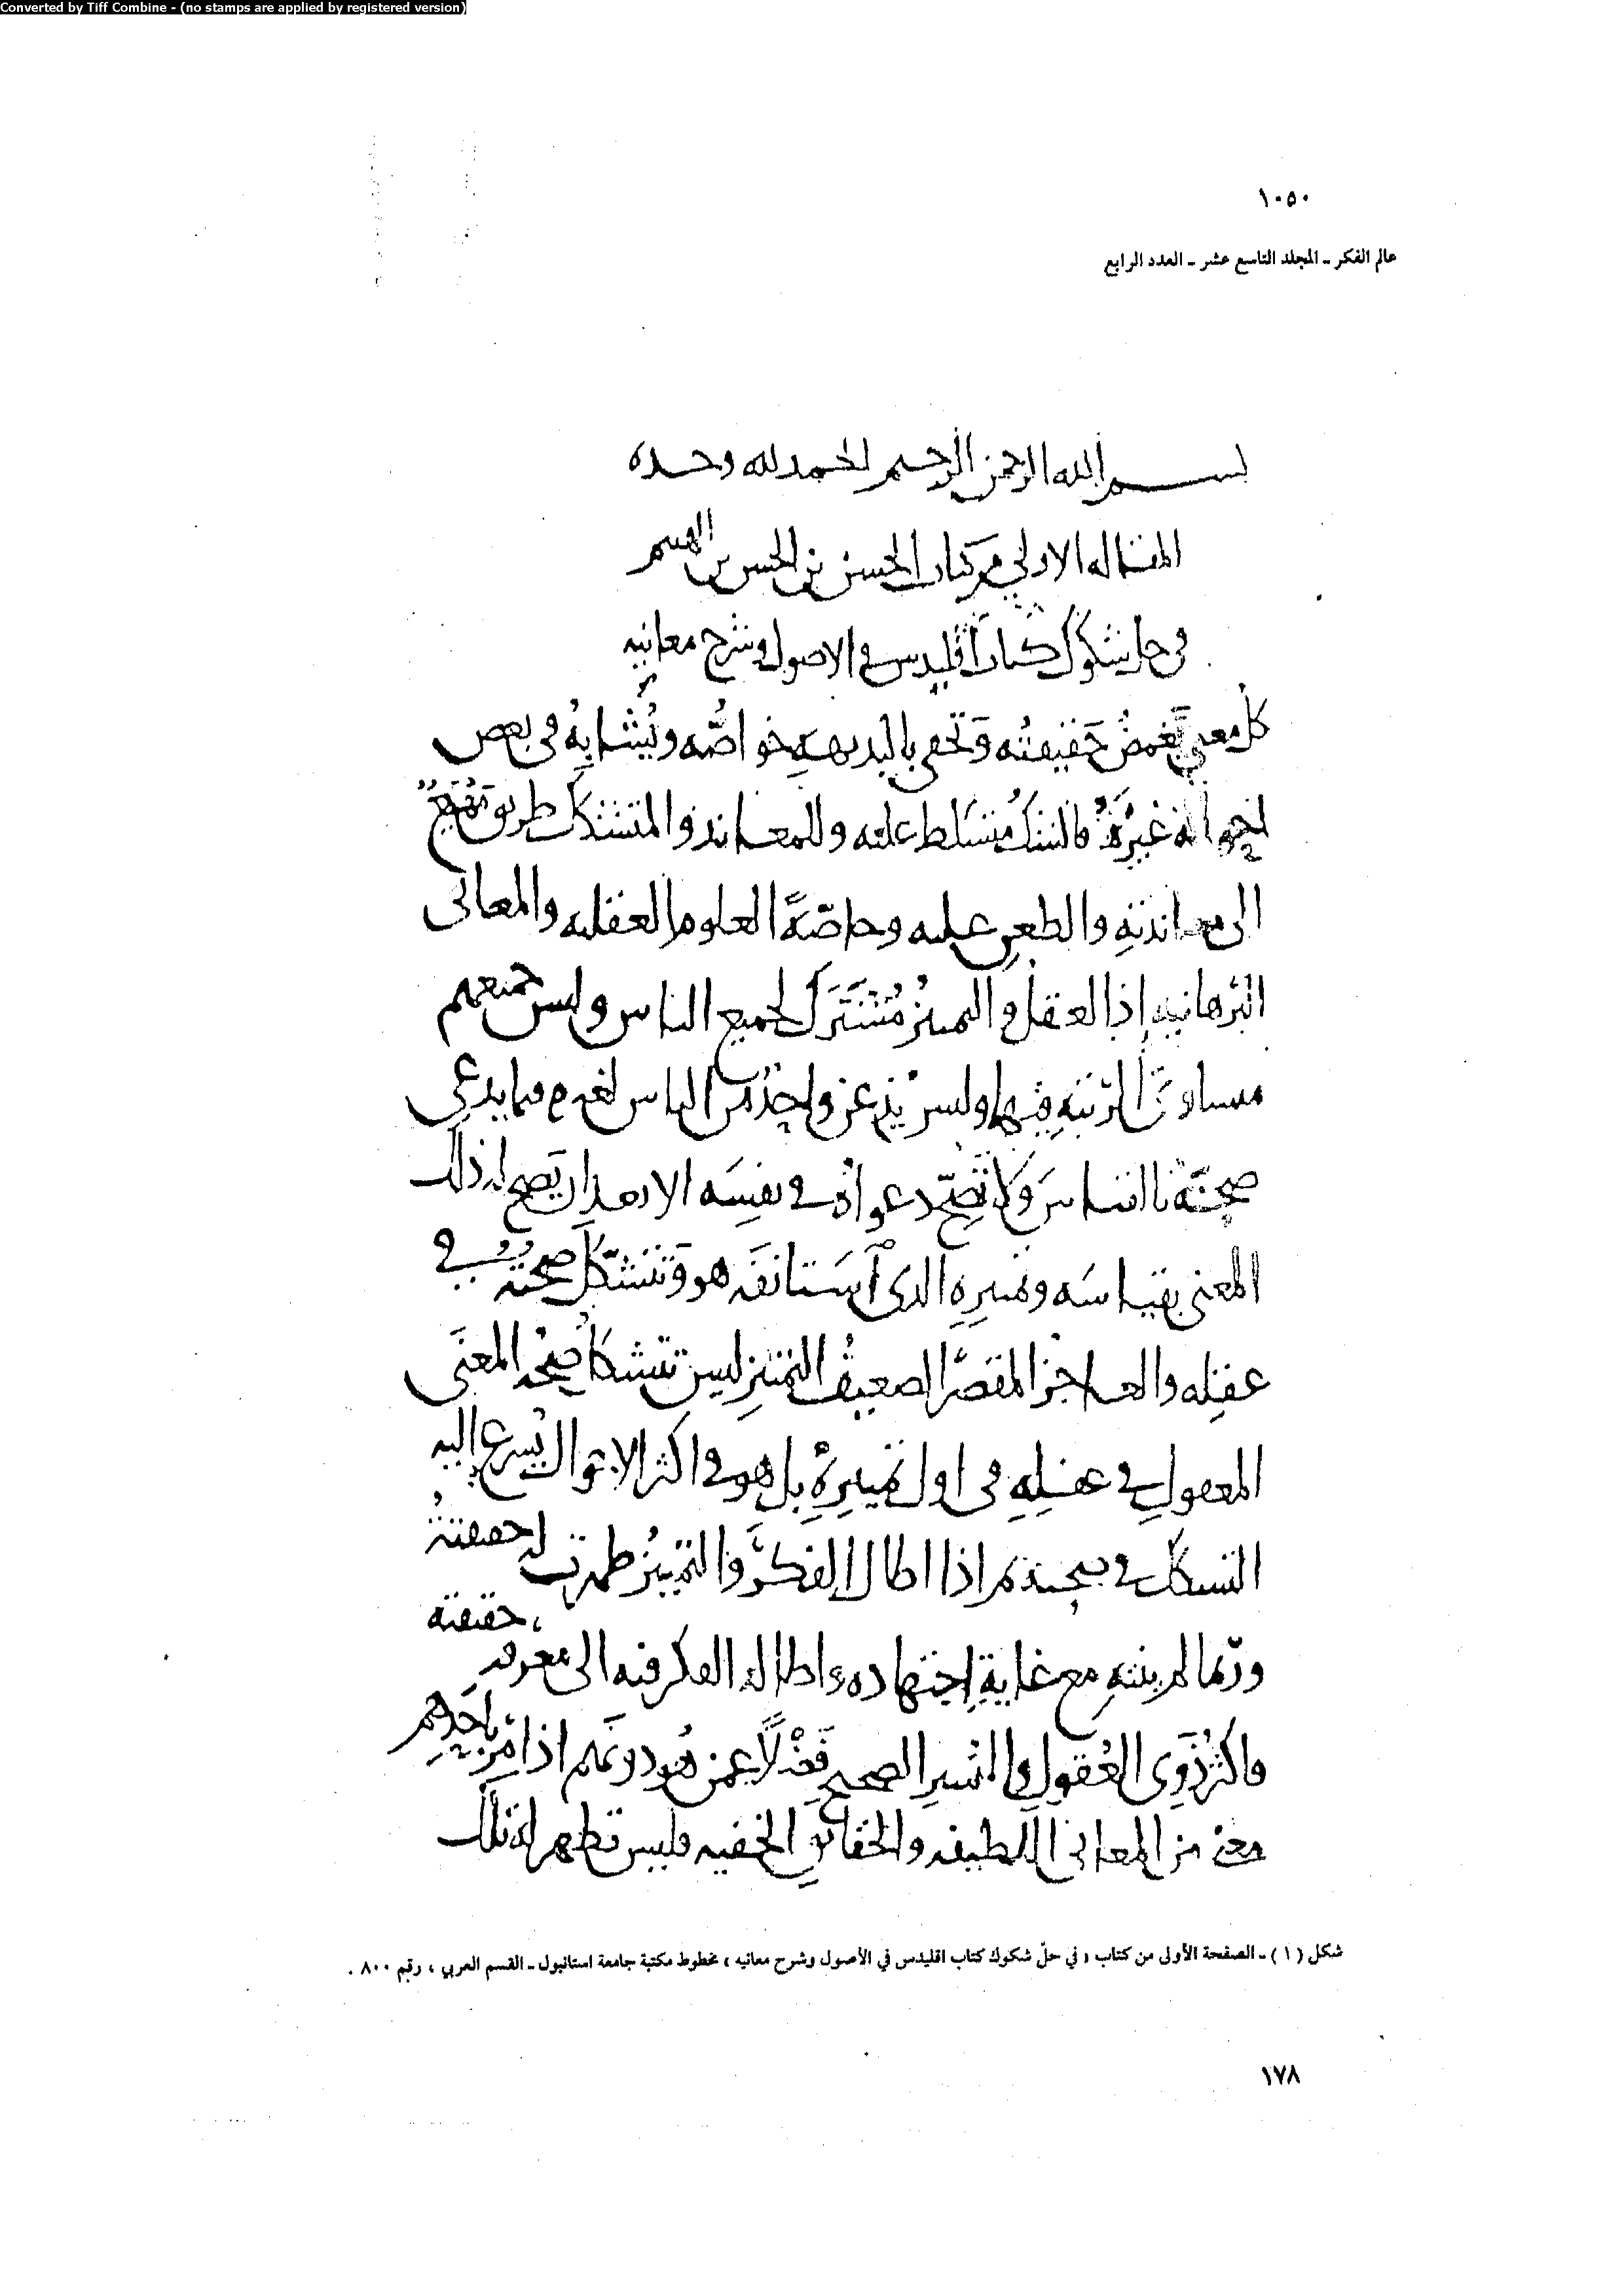 Converted by Tiff Combine - (no stamps are applied by registered version)
١٠٥٠
عالم الفكر ـ المجلد التاسع عشر ـ العدد الرابع
بسم الله الرحمن الرحيم الحمد لله وحده
المقاله الاولى من كتاب الحسن بن الحسن بن الهيثم
فى حل شكوك كتاب اقليدس فى الاصول وشرح معانيه
كل معنى تغمض حقيقته وتخفى بالبديهه خواصه ويشابه فى بعض
احواله غيره فالشك متسلط عليه وللمعاند والمتشكك طريق
الى معاندته والطعن عليه وخاصة العلوم العقليه والمعانى
البرهانيه اذ العقل والتمييز مشترك لجميع الناس وليس جميعهم
متساوى الرتبه فيهما وليس يذعن واحد من الناس لغيره فيما يدعى
صحته بالقياس ولا تصح دعواه فى نفسه الا بعد ان يصح له ذلك
المعنى بقياسه وتمييزه الذى استانفه هو وتتشكل صحته فى
عقله والعاجز المقصر الضعيف التمييز ليس تتشكل صحه المعنى
المعقول فى عقله فى اول تمييزه بل هو فى اكثر الاحوال يسرع اليه
التشكك فى صحته ثم اذا اطال الفكر والتمييز ظهرت له حقيقته
حقيقته
وربما لم ينته مع غاية اجتهاده واطاله الفكر فيه الى معرفه
فاكثر ذوى العقول والتمييز الصحيح فضلا عمن هو دونهم اذا مر باحدهم
معنى من المعانى اللطيفه والحقائق الخفيه فليس تظهر له تلك
شكل ( ١ ) ـ الصفحة الأولى من كتاب « في حلّ شكوك كتاب اقليدس في الأصول وشرح معانيه » مخطوط مكتبة جامعة استانبول ـ القسم العربي ، رقم ٨٠٠ .
١٧٨